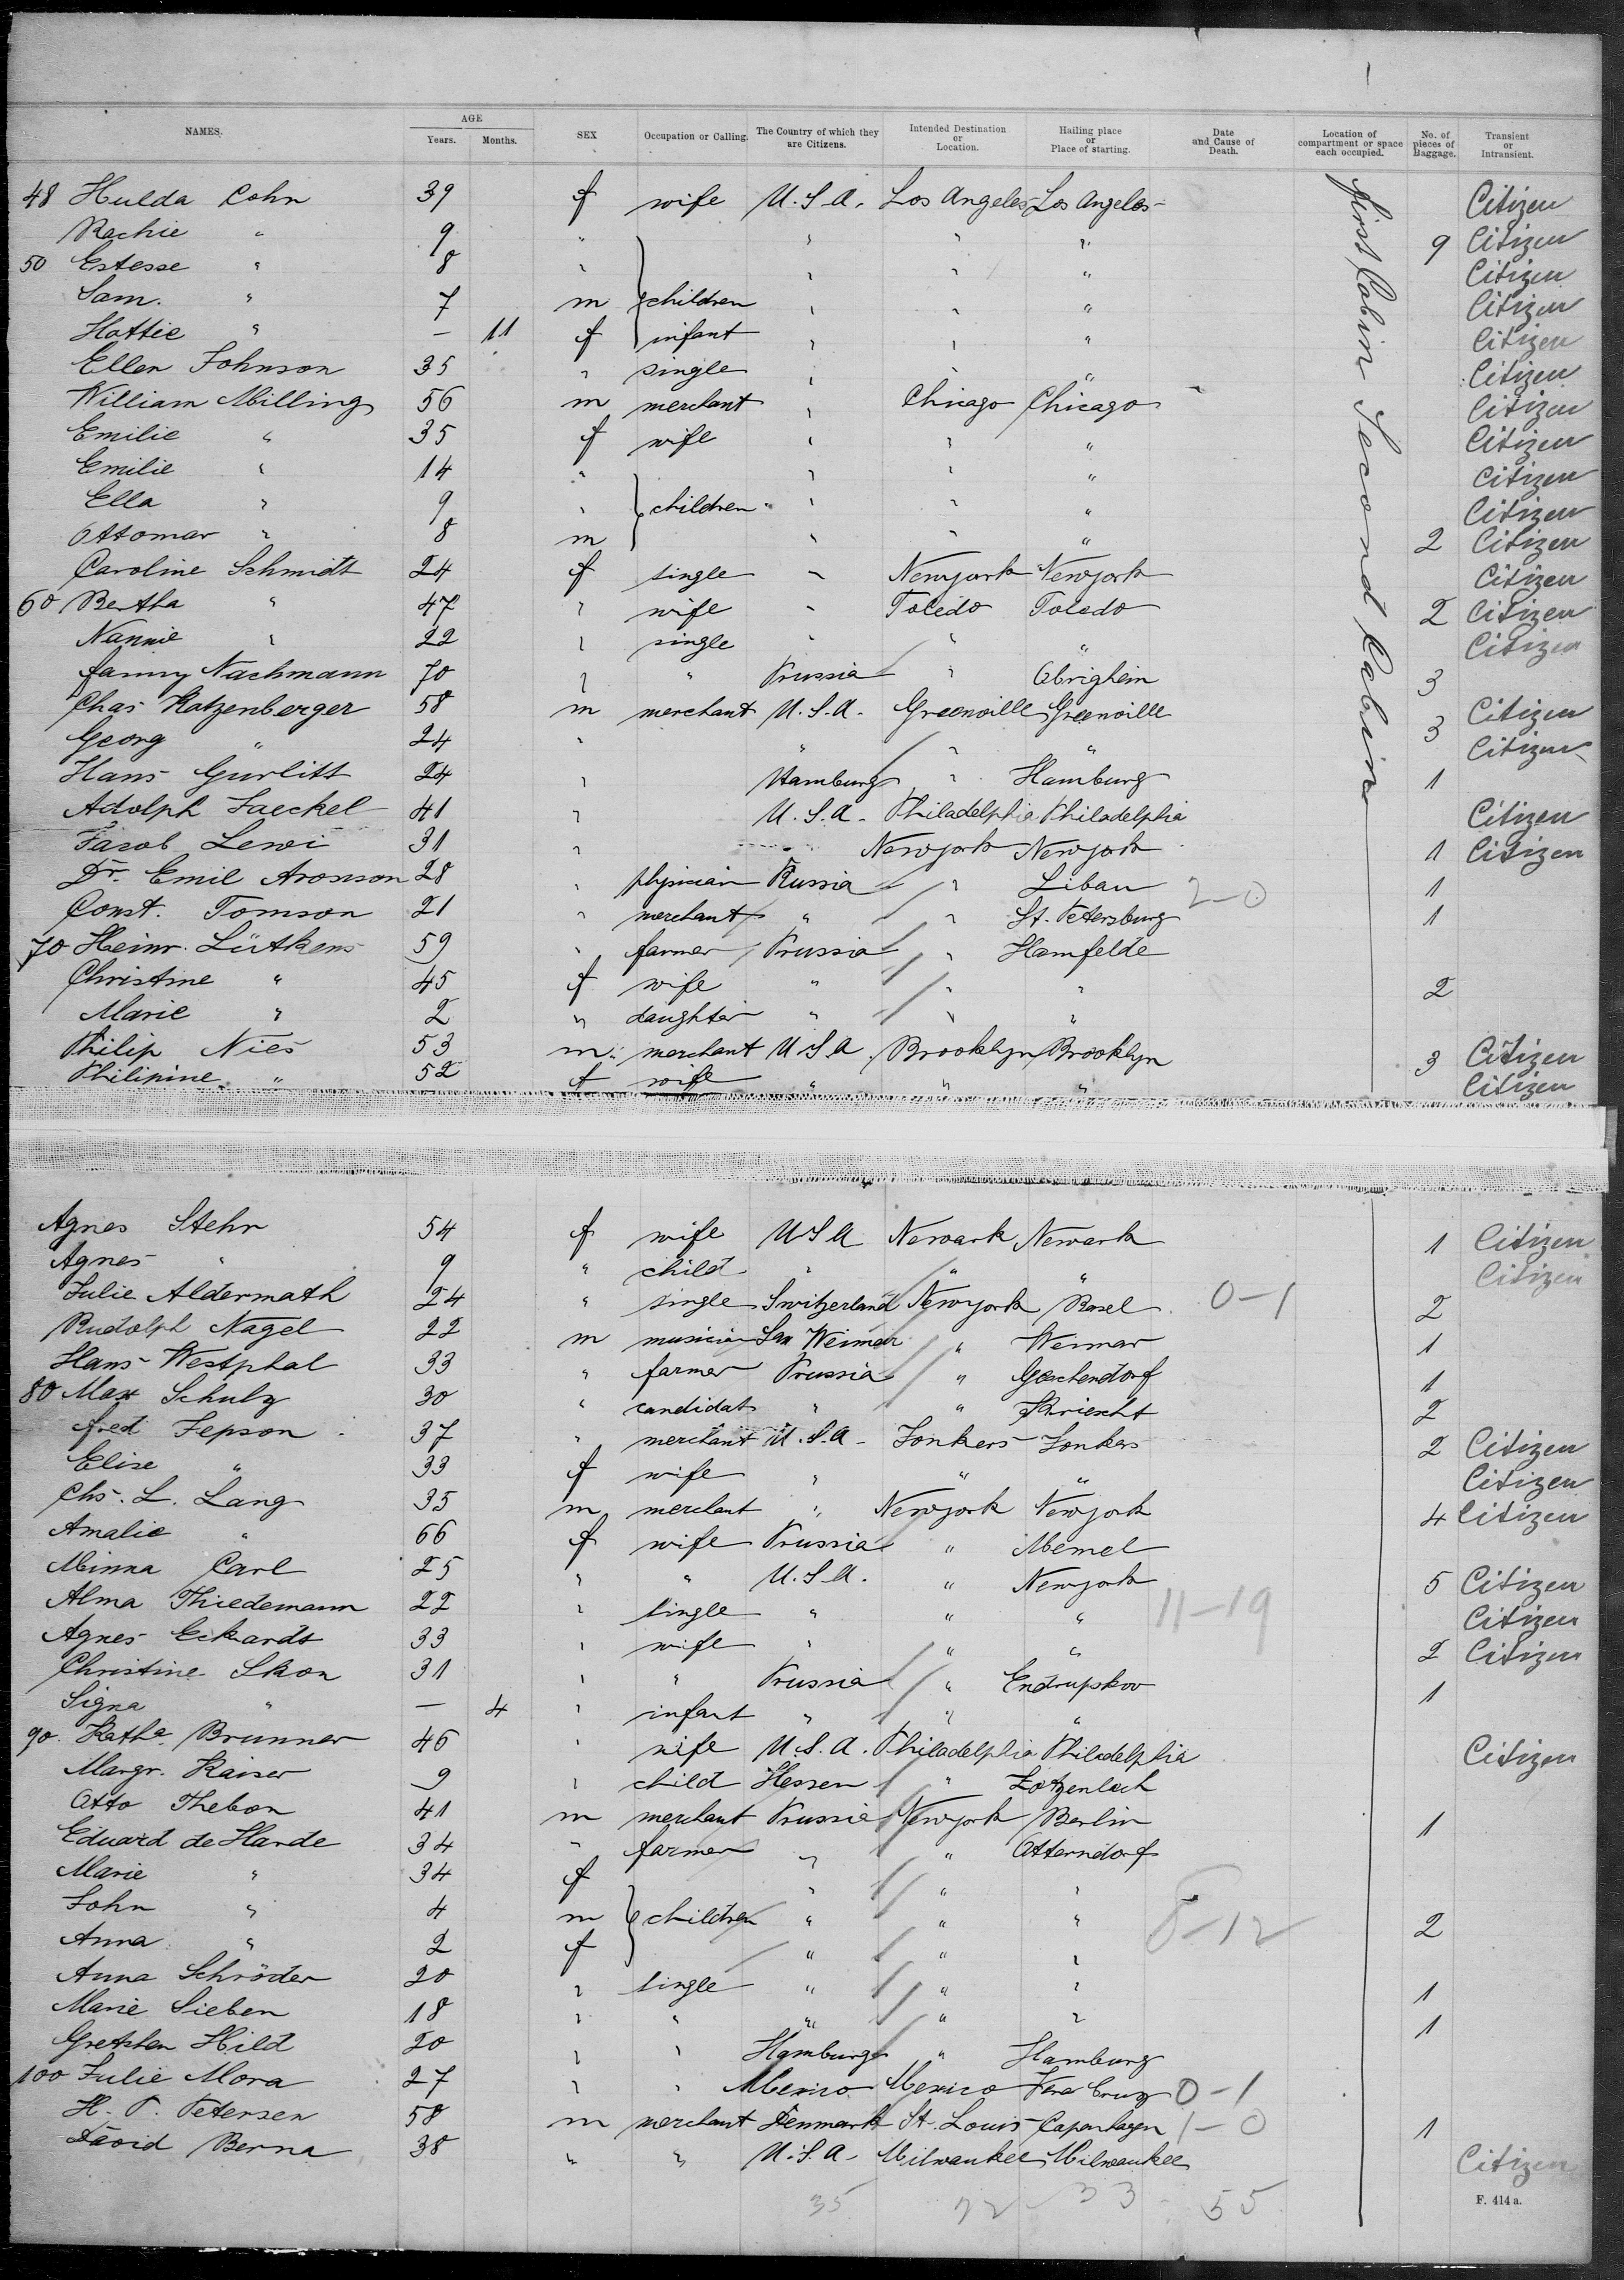 NAMES. AGE Years. Months. SEX Occupation or Calling. The Country of which they are Citizens. Intended Destination or Location. Hailing place or Place of starting. Date and Cause of Death. Location of compartment or space each occupied. No. of pieces of Baggage. Transient or Intransient.
first Cabin Second Cabin
48 Hulda Cohn 39 f wife U.S.A. Los Angeles Los Angeles Citizen
Rachie " 9 " " " " 9 Citizen
50 Estesse " 8 " " " " Citizen
Sam. " 7 m children " " " Citizen
Hattie " — 11 f infant " " " Citizen
Ellen Johnson 35 " single " " " Citizen
William Milling 56 m merchant " Chicago Chicago Citizen
Emilie " 35 f wife " " " Citizen
Emilie " 14 " " " " Citizen
Ella " 9 " children " " " Citizen
Ottomar " 8 m " " " 2 Citizen
Caroline Schmidt 24 f single " Newyork Newyork Citizen
60 Bertha " 47 " wife " Toledo Toledo 2 Citizen
Nannie " 22 " single " " " Citizen
fanny Nachmann 70 " " Prussia " Obrigheim 3
Chas Katzenberger 58 m merchant U.S.A. Greenville Greenville 3 Citizen
Georg " 24 " " " " Citizen
Hans Gurlitt 24 " Hamburg " Hamburg 1
Adolph Jaeckel 41 " U.S.A. Philadelphia Philadelphia Citizen
Jacob Lewi 31 " Newyork Newyork 1 Citizen
Dr. Emil Aronson 28 " physician Russia " Libau 2-0 1
Const. Tomson 21 " merchant " " St. Petersburg 1
70 Heinr. Lütkens 59 " farmer Prussia " Hamfelde
Christine " 45 f wife " " " 2
Marie " 2 " daughter " " "
Philip Nies 53 m merchant U.S.A. Brooklyn Brooklyn 3 Citizen
Philipine " 52 f wife " " " Citizen
Agnes Stehr 54 f wife USA Newark Newark 1 Citizen
Agnes " 9 " child " " " Citizen
Julie Aldermath 24 " single Switzerland Newyork Basel 0-1 2
Rudolph Nagel 22 m musician Sax Weimar " Weimar 1
Hans Westphal 33 " farmer Prussia " 1
80 Max Schulz 30 " candidat " " Kriescht 2
fred Jepson 37 " merchant U.S.A. Jonkers Jonkers 2 Citizen
Elise " 33 f wife " " " Citizen
Chs. L. Lang 35 m merchant " Newyork Newyork 4 Citizen
Amalie " 66 f wife Prussia " Memel
Minna Carl 25 " " U.S.A. " Newyork 5 Citizen
Alma Thiedemann 22 " single " " " 11-19 Citizen
Agnes Eckardt 33 " wife " " " 2 Citizen
Christine Skon 31 " " Prussia " Endrupskov 1
Signa " — 4 " infant " " "
90. Katha. Brunner 46 " wife U.S.A. Philadelphia Philadelphia Citizen
Margr. Kaiser 9 " child Hessen " Lotzenbach
Otto Thebon 41 m merchant Prussia Newyork Berlin 1
Eduard de Harde 34 " farmer " " Otterndorf
Marie " 34 f " " "
John " 4 m children " " " 8-12 2
Anna " 2 f " " "
Anna Schröder 20 " single " " " 1
Marie Sieben 18 " " " " " 1
Gretchen Hild 20 " " Hamburg " Hamburg
100 Julie Mora 27 " " Mexico Mexico Vera Cruz 0-1
H. P. Petersen 58 m merchant Denmark St. Louis Copenhagen 1-0 1
David Berna 38 " " U.S.A. Milwaukee Milwaukee Citizen
35 72 33 55
F. 414 a.